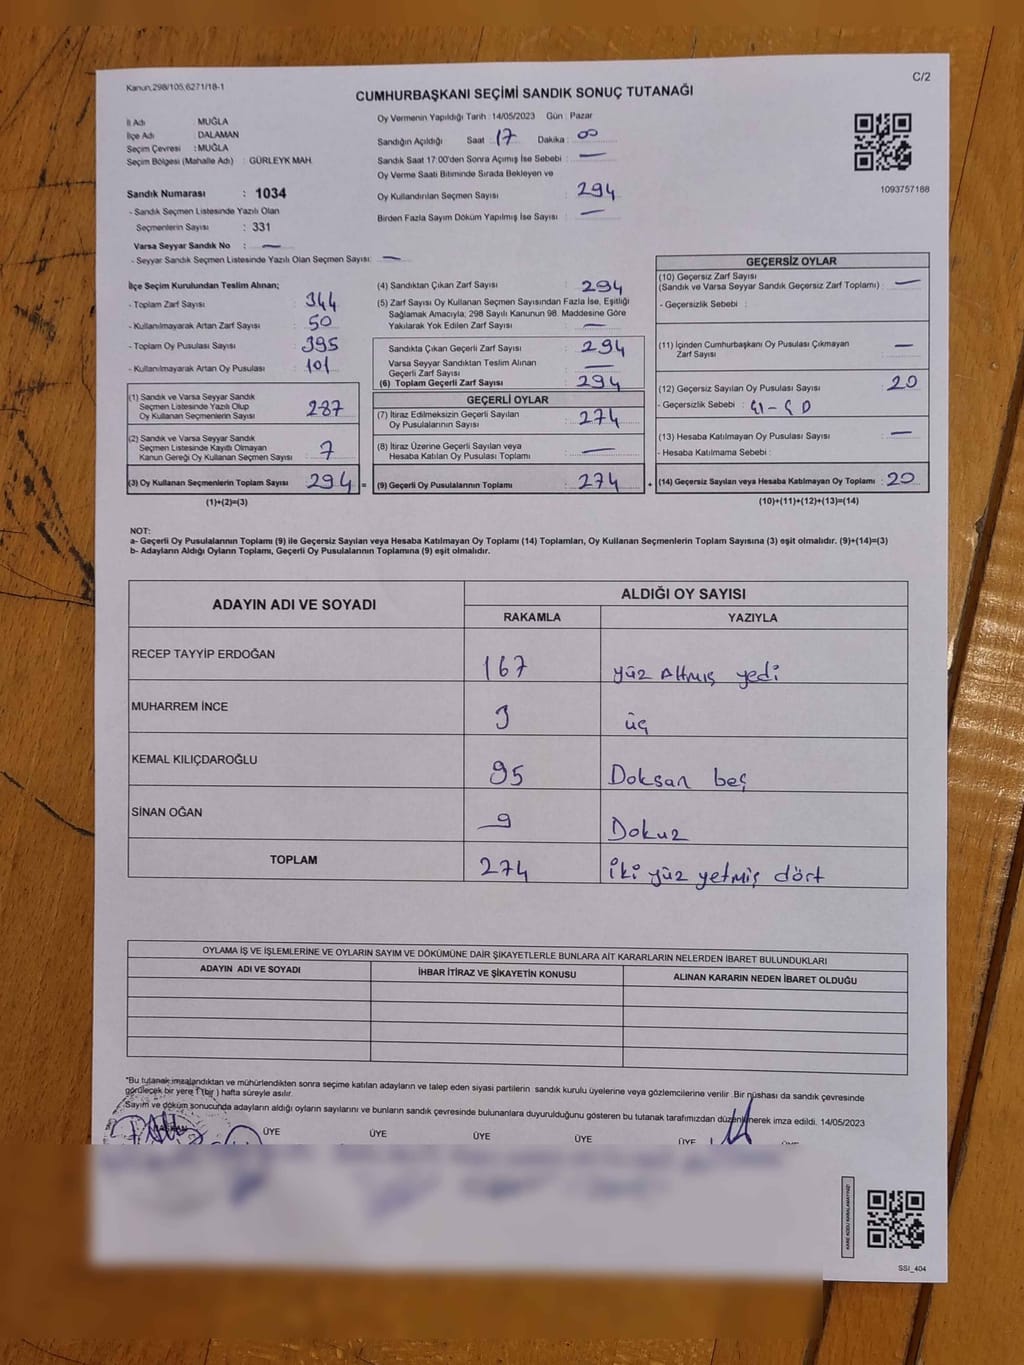 Kanun,298/105,6271/18-1
C/2
CUMHURBAŞKANI SEÇİMİ SANDIK SONUÇ TUTANAĞI
İl Adı MUĞLA
İlçe Adı DALAMAN
Seçim Çevresi : MUĞLA
Seçim Bölgesi (Mahalle Adı) : GÜRLEYK MAH.
Sandık Numarası : 1034
- Sandık Seçmen Listesinde Yazılı Olan
Seçmenlerin Sayısı : 331
Varsa Seyyar Sandık No : —
- Seyyar Sandık Seçmen Listesinde Yazılı Olan Seçmen Sayısı: —
Oy Vermenin Yapıldığı Tarih : 14/05/2023 Gün : Pazar
Sandığın Açıldığı Saat : 17 Dakika : 00
Sandık Saat 17:00'den Sonra Açımış İse Sebebi : —
Oy Verme Saati Bitiminde Sırada Bekleyen ve
Oy Kullandırılan Seçmen Sayısı : 294
Birden Fazla Sayım Döküm Yapılmış İse Sayısı : —
1093757188
İlçe Seçim Kurulundan Teslim Alınan;
- Toplam Zarf Sayısı : 344
- Kullanılmayarak Artan Zarf Sayısı : 50
- Toplam Oy Pusulası Sayısı : 395
- Kullanılmayarak Artan Oy Pusulası : 101
(1) Sandık ve Varsa Seyyar Sandık
Seçmen Listesinde Yazılı Olup
Oy Kullanan Seçmenlerin Sayısı : 287
(2) Sandık ve Varsa Seyyar Sandık
Seçmen Listesinde Kayıtlı Olmayan
Kanun Gereği Oy Kullanan Seçmen Sayısı : 7
(3) Oy Kullanan Seçmenlerin Toplam Sayısı : 294 =
(1)+(2)=(3)
(4) Sandıktan Çıkan Zarf Sayısı : 294
(5) Zarf Sayısı Oy Kullanan Seçmen Sayısından Fazla İse, Eşitliği
Sağlamak Amacıyla, 298 Sayılı Kanunun 98. Maddesine Göre
Yakılarak Yok Edilen Zarf Sayısı : —
Sandıkta Çıkan Geçerli Zarf Sayısı : 294
Varsa Seyyar Sandıktan Teslim Alınan
Geçerli Zarf Sayısı : —
(6) Toplam Geçerli Zarf Sayısı : 294
GEÇERLİ OYLAR
(7) İtiraz Edilmeksizin Geçerli Sayılan
Oy Pusulalarının Sayısı : 274
(8) İtiraz Üzerine Geçerli Sayılan veya
Hesaba Katılan Oy Pusulası Toplamı : —
(9) Geçerli Oy Pusulalarının Toplamı : 274 +
GEÇERSİZ OYLAR
(10) Geçersiz Zarf Sayısı
(Sandık ve Varsa Seyyar Sandık Geçersiz Zarf Toplamı) : —
- Geçersizlik Sebebi :
(11) İçinden Cumhurbaşkanı Oy Pusulası Çıkmayan
Zarf Sayısı : —
(12) Geçersiz Sayılan Oy Pusulası Sayısı : 20
- Geçersizlik Sebebi :
(13) Hesaba Katılmayan Oy Pusulası Sayısı : —
- Hesaba Katılmama Sebebi :
(14) Geçersiz Sayılan veya Hesaba Katılmayan Oy Toplamı : 20
(10)+(11)+(12)+(13)=(14)
NOT:
a- Geçerli Oy Pusulalarının Toplamı (9) ile Geçersiz Sayılan veya Hesaba Katılmayan Oy Toplamı (14) Toplamları, Oy Kullanan Seçmenlerin Toplam Sayısına (3) eşit olmalıdır. (9)+(14)=(3)
b- Adayların Aldığı Oyların Toplamı, Geçerli Oy Pusulalarının Toplamına (9) eşit olmalıdır.
ADAYIN ADI VE SOYADI ALDIĞI OY SAYISI
RAKAMLA YAZIYLA
RECEP TAYYİP ERDOĞAN 167 yüz Altmış yedi
MUHARREM İNCE 3 üç
KEMAL KILIÇDAROĞLU 95 Doksan beş
SİNAN OĞAN 9 Dokuz
TOPLAM 274 iki yüz yetmiş dört
OYLAMA İŞ VE İŞLEMLERİNE VE OYLARIN SAYIM VE DÖKÜMÜNE DAİR ŞİKAYETLERLE BUNLARA AİT KARARLARIN NELERDEN İBARET BULUNDUKLARI
ADAYIN ADI VE SOYADI İHBAR İTİRAZ VE ŞİKAYETİN KONUSU ALINAN KARARIN NEDEN İBARET OLDUĞU
*Bu tutanak imzalandıktan ve mühürlendikten sonra seçime katılan adayların ve talep eden siyasi partilerin sandık kurulu üyelerine veya gözlemcilerine verilir .Bir nüshası da sandık çevresinde
görülecek bir yere 1 (bir) hafta süreyle asılır.
Sayım ve döküm sonucunda adayların aldığı oyların sayılarını ve bunların sandık çevresinde bulunanlara duyurulduğunu gösteren bu tutanak tarafımızdan düzenlenerek imza edildi. 14/05/2023
BAŞKAN ÜYE ÜYE ÜYE ÜYE ÜYE ÜYE
KARE KODU KARALAMAYINIZ!
SSI_404